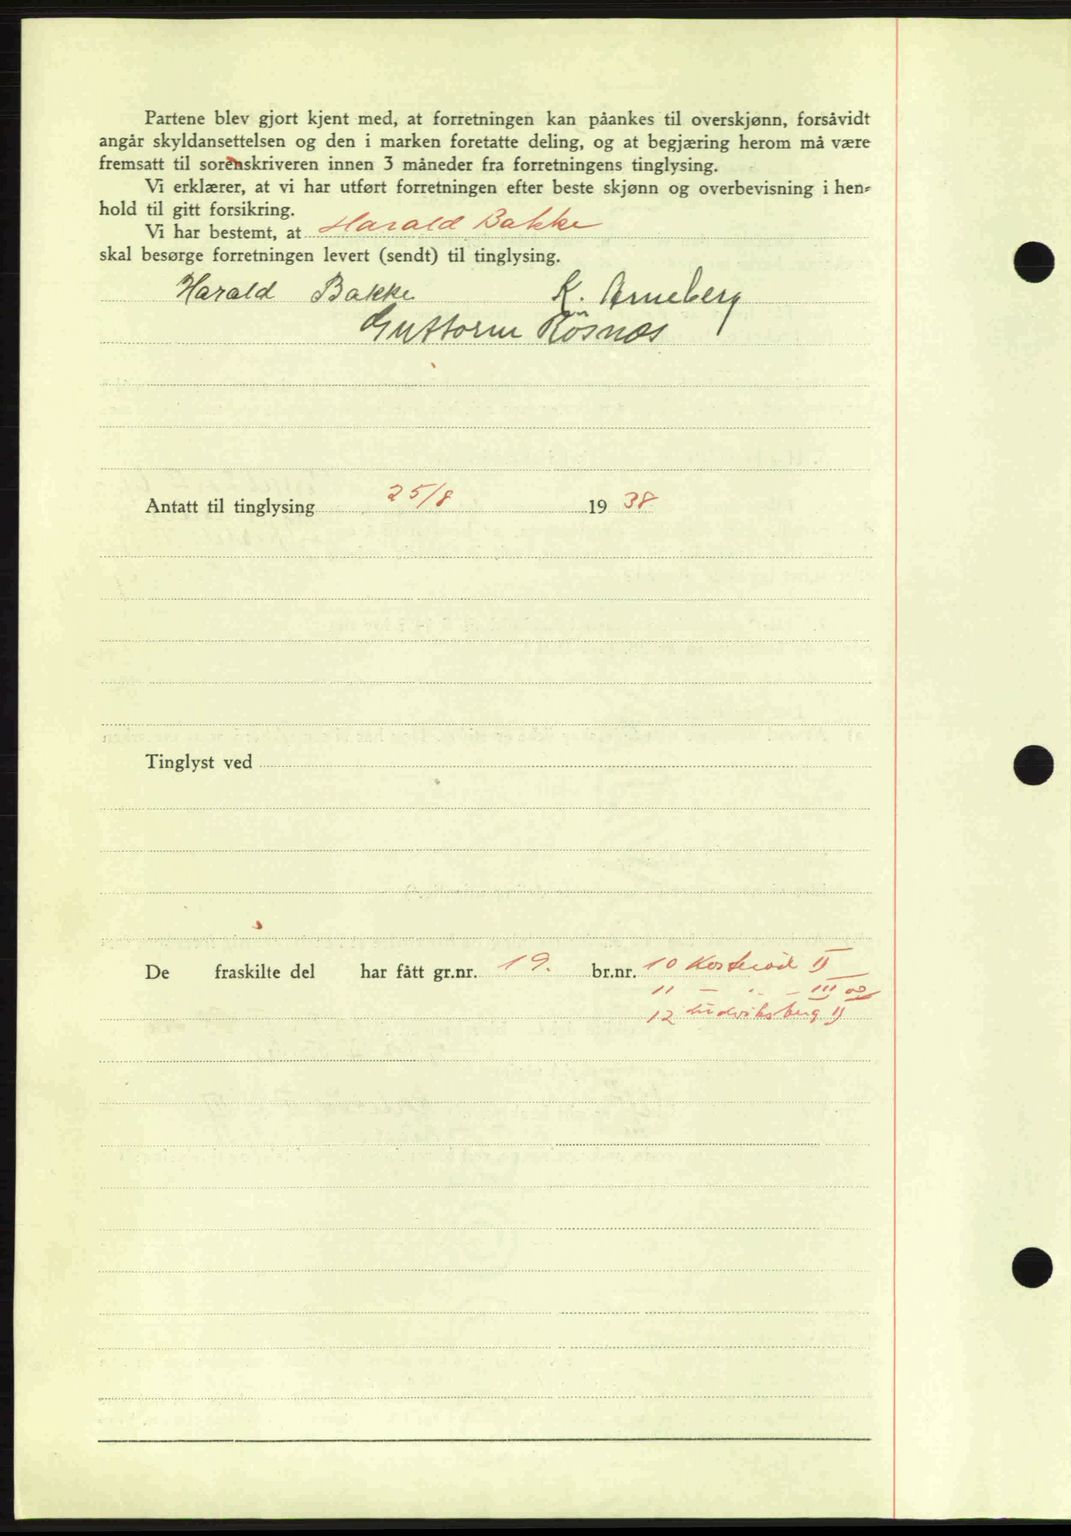 Partene blev gjort kjent med, at forretningen kan påankes til overskjønn, forsåvidt
angår skyldansettelsen og den i marken foretatte deling, og at begjæring herom må være
fremsatt til sorenskriveren innen 3 måneder fra forretningens tinglysing.
Vi erklærer, at vi har utført forretningen efter beste skjønn og overbevisning i hen-
hold til gitt forsikring.
Vi har bestemt, at Harald Bakke
skal besørge forretningen levert (sendt) til tinglysing.
Harald Bakke K. Arneberg
Guttorm Rösnæs
Antatt til tinglysing 25/8 1938
Tinglyst ved
De fraskilte del har fått gr.nr. 19. br.nr. 10 Kosterød II
11 — " — III
12 Ludviksberg II